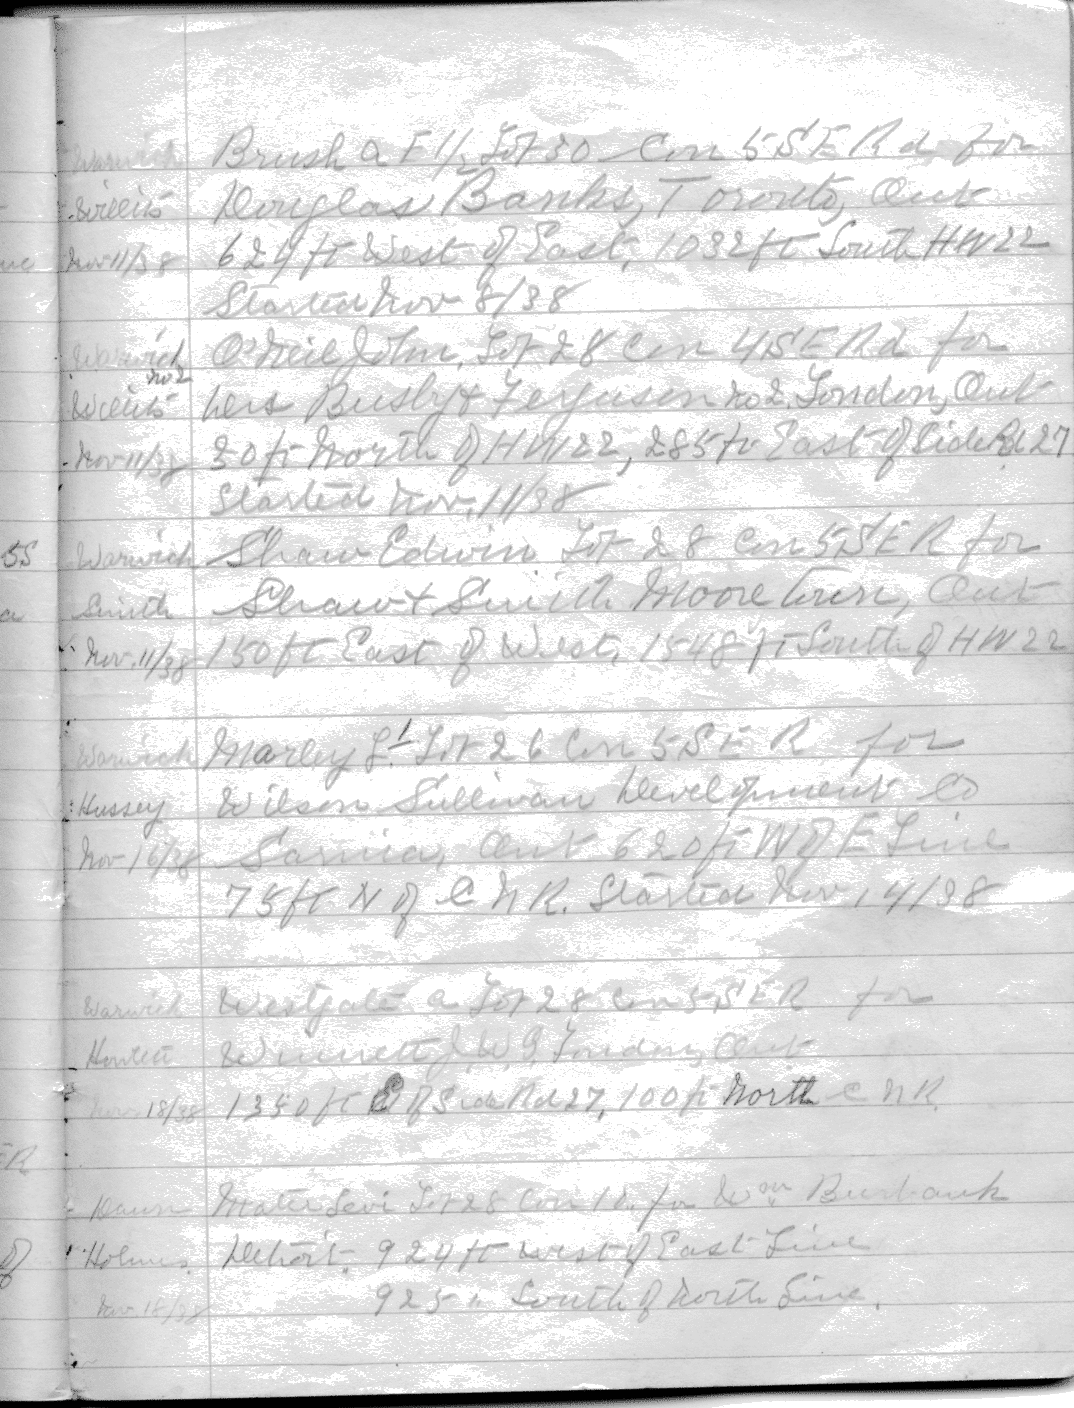 Warwick Brush A E 1/2 Lot 30 Con 5 S E Rd for
Willits Douglas Banks, Toronto, Ont
Nov 11/38 624 ft West of East, 1032 ft South HW 22
Started Nov 8/38
Warwick O'Neil John, Lot 28 Con 4 S E Rd for
No 2
Willits Busby & Ferguson No 2, London, Ont
Nov 11/38 50 ft North of HW 22, 285 ft East of Side Rd 27
Started Nov. 11/38
5S Warwick Shaw Edwin Lot 28 Con 5 S E R for
a Smith Shaw & Smith Mooretown, Ont
Nov. 11/38 150 ft East of West, 1548 ft South of HW 22
Warwick Marley L. 1 Lot 26 Con 5 S E R for
Hussey Wilson Sullivan Development Co
Nov 16/38 Sarnia, Ont 620 ft W of E Line
75 ft N of C N R. Started Nov 14/38
Warwick Westgate A Lot 28 Con 5 S E R for
Howlett Winnett J. W. G. London, Ont
Nov. 18/38 1350 ft E of Side Rd 27, 100 ft North C N R.
ER
Dawn Mater Levi Lot 28 Con 10. for Wm Burbank
of Holmes. Detroit. 924 ft West of East Line
Nov. 18/38 925 " South of North Line.